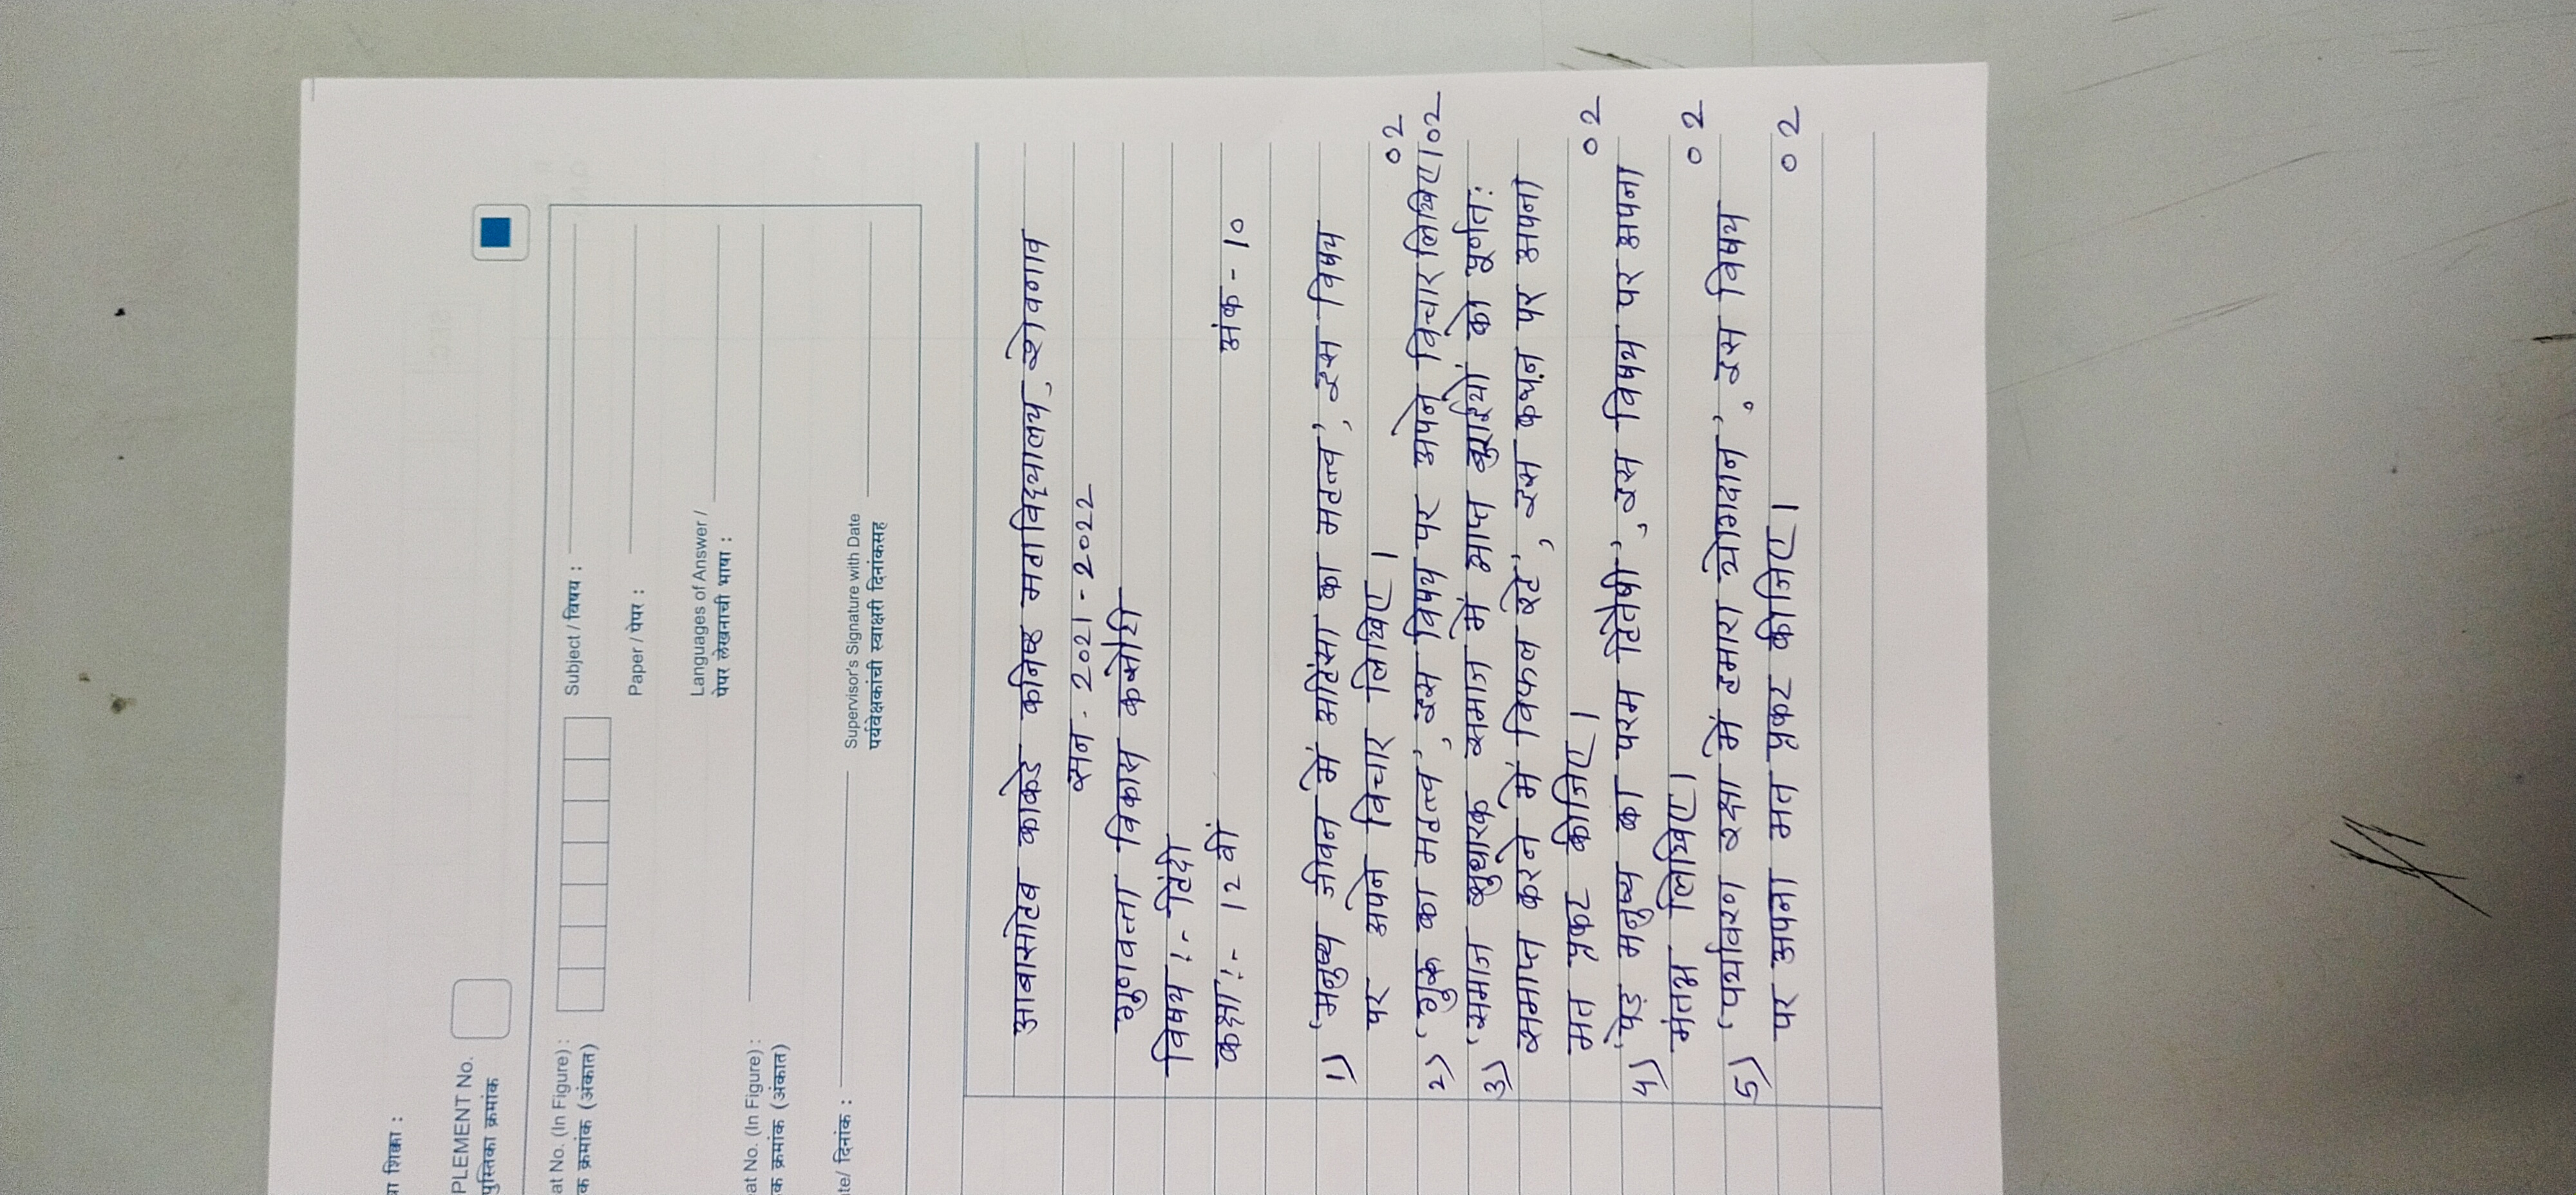 ा शिक्का :
PLEMENT No.
पुस्तिका क्रमांक
at No. (In Figure) :
क क्रमांक (अंकात)
Subject / विषय :
Paper / पेपर :
Languages of Answer /
पेपर लेखनाची भाषा :
at No. (In Figure) :
क क्रमांक (अंकात)
te/ दिनांक :
Supervisor's Signature with Date
पर्यवेक्षकांची स्वाक्षरी दिनांकसह
आबासाहेब काकडे कनिष्ठ महाविद्यालय, शेवगाव
सन - 2021 - 2022
गुणवत्ता विकास कसोटी
विषय :- हिंदी
कक्षा :- 12 वीं अंक - 10
1) 'मनुष्य जीवन में अहिंसा का महत्त्व', इस विषय
पर अपने विचार लिखिए। 02
2) 'गुरु का महत्त्व', इस विषय पर अपने विचार लिखिए। 02
3) 'समाज सुधारक समाज में व्याप्त बुराईयों को पूर्णतः
समाप्त करने में विफल रहे', इस कथन पर अपना
मत प्रकट कीजिए। 02
4) 'पेड़ मनुष्य का परम हितैषी', इस विषय पर अपना
मंतव्य लिखिए। 02
5) 'पर्यावरण रक्षा में हमारा योगदान', इस विषय
पर अपना मत प्रकट कीजिए। 02